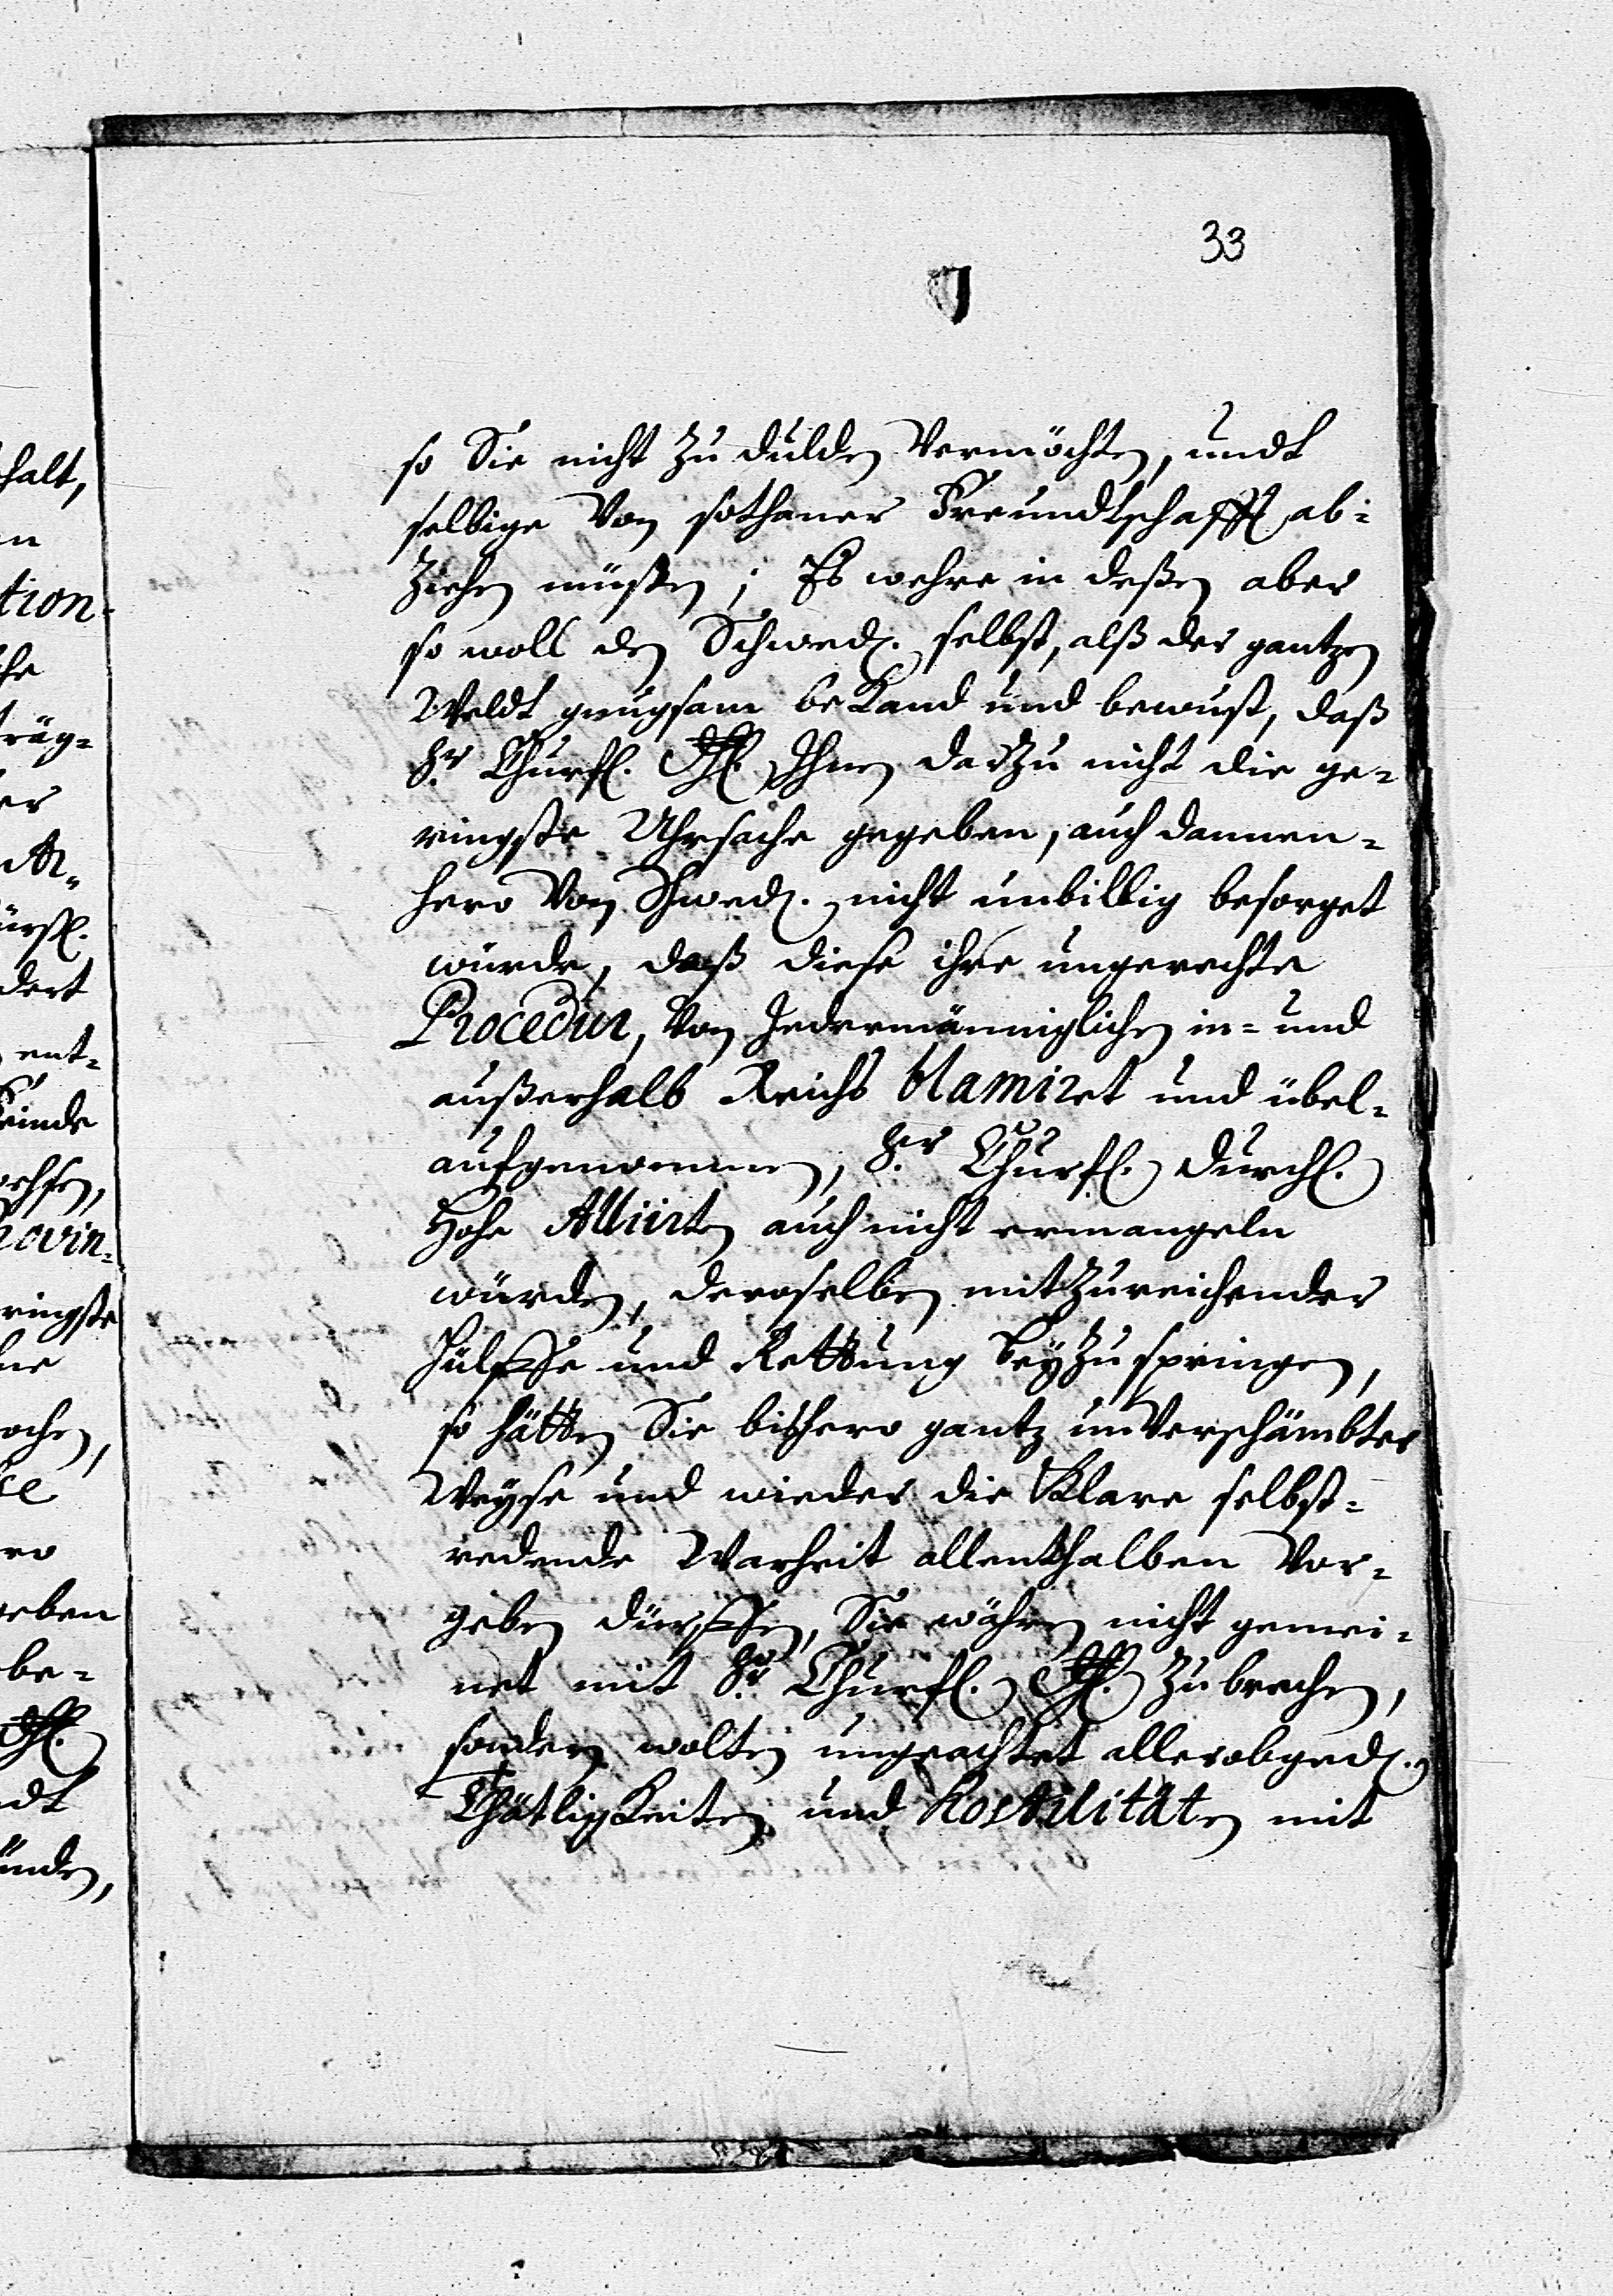 33
so Sie nicht zu dulden Vermöchten, undt
selbige Von sothaner Freundtschafft ab-
ziehen müßen; Es wehre in deßen aber
so woll den Schwed. selbst, alß der gantzen
Weldt gnugsam bekand und bewust, daß
Sr Churfl. Dhl. Ihnen darzu nicht die ge-
ringste Uhrsache gegeben, auch dannen-
hero Von Schwed. nicht unbillig besorget
würde, daß diese ihre ungerechte
Procedur, Von Jedermänniglichen in- und
außerhalb Reichs blamiret und übel-
aufgenommen, Sr Churfl. Durchl.
Hohe Alliirten auch nicht ermangeln
würden, deroselben mit zureichender
Hülffe und Rettung beyzuspringen,
so hätten Sie bishero gantz unverschämbter
Weyse und wieder die Klare selbst-
redende Warheit allenthalben Vor-
geben dürffen, Sie währen nicht gemei-
net mit Sr Churfl. Dhl. zu brechen,
sondern wolten ungeachtet aller obged.
Thätligkeiten und Hostilitäten mit
halt,
tion-
träg-
er
dert
ent-
Feinde
ringste
ochen,
geben
be-
Dhl.
ndt